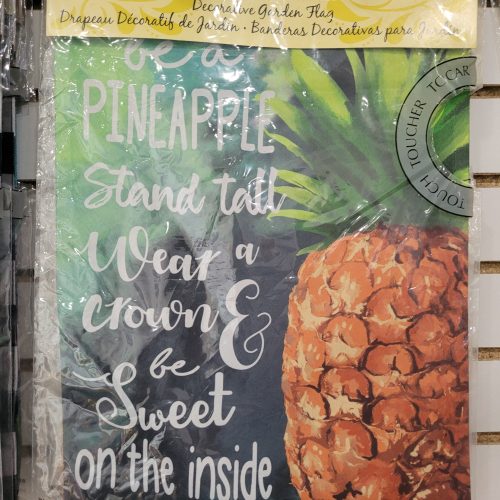 Decorative Garden Flag
Drapeau Décoratif de Jardin • Banderas Decorativas para Jardín
be a
PINEAPPLE
Stand tall
Wear a
crown &
be
Sweet
on the inside
TOUCH TOUCHER TO CAR